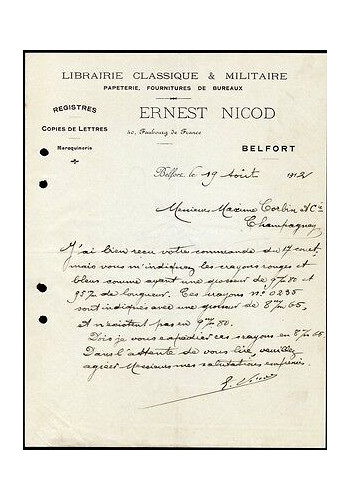 LIBRAIRIE CLASSIQUE & MILITAIRE
PAPETERIE, FOURNITURES DE BUREAUX
REGISTRES
COPIES DE LETTRES
Maroquinerie
ERNEST NICOD
40, Faubourg de France
BELFORT
Belfort, le 19 Août 1912
Messieurs Maxime Corbin & Cie
Champagney
J'ai bien reçu votre commande du 17 cour
mais vous m'indiquez les crayons rouges et
bleus comme ayant une grosseur de 9m/m 80 et
95 m/m de longueur. Ces crayons No 0235
sont indiqués avec une grosseur de 8m/m 65,
et n'existent pas en 9m/m 80.
Dois je vous expédier ces crayons en 8m/m 65.
Dans l'attente de vous lire, veuillez
agréer Messieurs mes salutations empressées.
E. Nicod